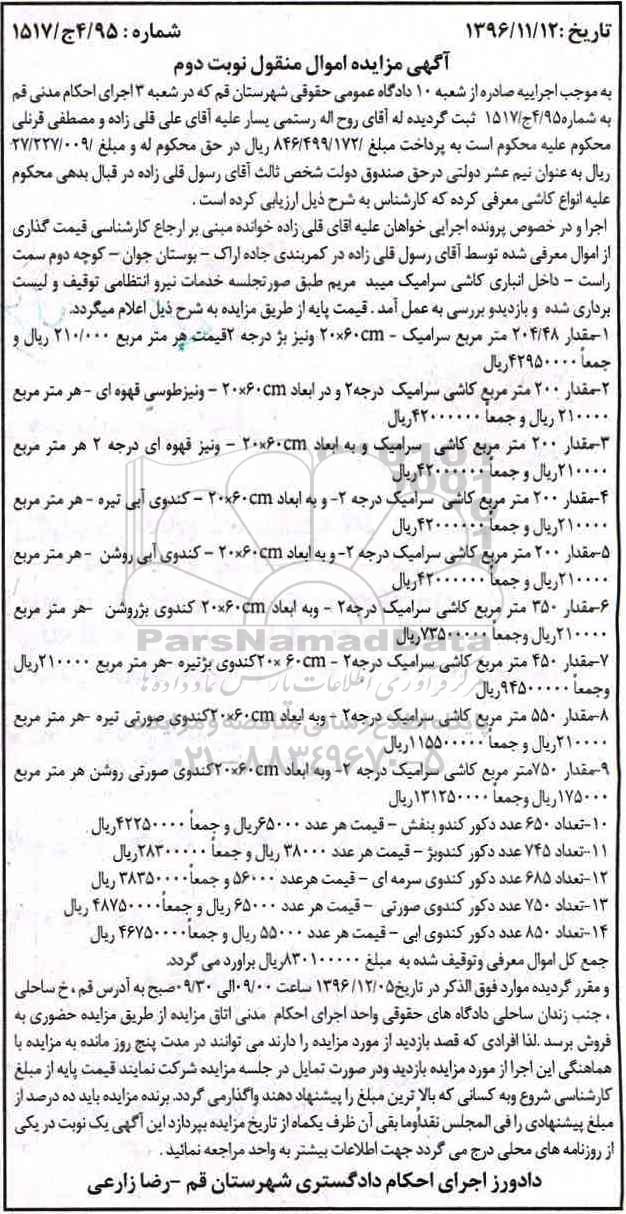 تاریخ :۱۳۹۶/۱۱/۱۲ شماره : ۱۵۱۷/ج۴/۹۵
آگهی مزایده اموال منقول نوبت دوم
به موجب اجراییه صادره از شعبه ۱۰ دادگاه عمومی حقوقی شهرستان قم که در شعبه ۳ اجرای احکام مدنی قم
به شماره۱۵۱۷/ج۴/۹۵ ثبت گردیده له آقای روح اله رستمی یسار علیه آقای علی قلی زاده و مصطفی قرنلی
محکوم علیه محکوم است به پرداخت مبلغ /۸۴۶/۴۹۹/۱۷۲ ریال در حق محکوم له و مبلغ /۲۷/۲۲۷/۰۰۹
ریال به عنوان نیم عشر دولتی درحق صندوق دولت شخص ثالث آقای رسول قلی زاده در قبال بدهی محکوم
علیه انواع کاشی معرفی کرده که کارشناس به شرح ذیل ارزیابی کرده است .
اجرا و در خصوص پرونده اجرایی خواهان علیه اقای قلی زاده خوانده مبنی بر ارجاع کارشناسی قیمت گذاری
از اموال معرفی شده توسط آقای رسول قلی زاده در کمربندی جاده اراک – بوستان جوان – کوچه دوم سمت
راست – داخل انباری کاشی سرامیک میبد مریم طبق صورتجلسه خدمات نیرو انتظامی توقیف و لیست
برداری شده و بازدیدو بررسی به عمل آمد . قیمت پایه از طریق مزایده به شرح ذیل اعلام میگردد.
۱-مقدار ۲۰۴/۴۸ متر مربع سرامیک - ۲۰×۶۰cm ونیز بژ درجه ۲قیمت هر متر مربع ۲۱۰/۰۰۰ ریال و
جمعاً ۴۲۹۵۰۰۰۰ریال
۲-مقدار ۲۰۰ متر مربع کاشی سرامیک درجه۲ و در ابعاد ۲۰×۶۰cm – ونیزطوسی قهوه ای -هر متر مربع
۲۱۰۰۰۰ ریال و جمعاً ۴۲۰۰۰۰۰۰ریال
۳-مقدار ۲۰۰ متر مربع کاشی سرامیک و به ابعاد ۲۰×۶۰cm – ونیز قهوه ای درجه ۲ هر متر مربع
۲۱۰۰۰۰ریال و جمعاً ۴۲۰۰۰۰۰۰ریال
۴-مقدار ۲۰۰ متر مربع کاشی سرامیک درجه ۲- و به ابعاد ۲۰×۶۰cm – کندوی آبی تیره -هر متر مربع
۲۱۰۰۰۰ریال و جمعاً ۴۲۰۰۰۰۰۰ریال
۵-مقدار ۲۰۰ متر مربع کاشی سرامیک درجه ۲- و به ابعاد ۲۰×۶۰cm – کندوی آبی روشن -هر متر مربع
۲۱۰۰۰۰ریال و جمعاً ۴۲۰۰۰۰۰۰ریال
۶-مقدار ۳۵۰ متر مربع کاشی سرامیک درجه۲ - وبه ابعاد ۲۰×۶۰cm کندوی بژروشن -هر متر مربع
۲۱۰۰۰۰ریال وجمعاً ۷۳۵۰۰۰۰۰ریال
۷-مقدار ۴۵۰ متر مربع کاشی سرامیک درجه۲ - ۲۰× ۶۰cmکندوی بژتیره -هر متر مربع ۲۱۰۰۰۰ریال
وجمعاً ۹۴۵۰۰۰۰۰ریال
۸-مقدار ۵۵۰ متر مربع کاشی سرامیک درجه۲ - وبه ابعاد ۲۰×۶۰cmکندوی صورتی تیره -هر متر مربع
۲۱۰۰۰۰ریال و جمعاً ۱۱۵۵۰۰۰۰۰ریال
۹-مقدار ۷۵۰متر مربع کاشی سرامیک درجه ۲- وبه ابعاد ۲۰×۶۰cmکندوی صورتی روشن هر متر مربع
۱۷۵۰۰۰ریال وجمعاً ۱۳۱۲۵۰۰۰۰ریال
۱۰-تعداد ۶۵۰ عدد دکور کندو بنفش – قیمت هر عدد ۶۵۰۰۰ریال و جمعاً ۴۲۲۵۰۰۰۰ریال.
۱۱-تعداد ۷۴۵ عدد دکور کندوبژ – قیمت هر عدد ۳۸۰۰۰ ریال و جمعاً ۲۸۳۰۰۰۰۰ریال
۱۲-تعداد ۶۸۵ عدد دکور کندوی سرمه ای – قیمت هرعدد ۵۶۰۰۰ و جمعاً۳۸۳۵۰۰۰۰ ریال
۱۳-تعداد ۷۵۰ عدد دکور کندوی صورتی – قیمت هر عدد ۶۵۰۰۰ ریال و جمعاً ۴۸۷۵۰۰۰۰ ریال
۱۴-تعداد ۸۵۰ عدد دکور کندوی ابی – قیمت هر عدد ۵۵۰۰۰ ریال و جمعاً۴۶۷۵۰۰۰۰ ریال
جمع کل اموال معرفی وتوقیف شده به مبلغ ۸۳۰۱۰۰۰۰۰ریال براورد می گردد.
و مقرر گردیده موارد فوق الذکر در تاریخ۱۳۹۶/۱۲/۰۵ ساعت ۰۹/۰۰الی ۰۹/۳۰صبح به آدرس قم ، خ ساحلی
، جنب زندان ساحلی دادگاه های حقوقی واحد اجرای احکام مدنی اتاق مزایده از طریق مزایده حضوری به
فروش برسد .لذا افرادی که قصد بازدید از مورد مزایده را دارند می توانند در مدت پنج روز مانده به مزایده با
هماهنگی این اجرا از مورد مزایده بازدید ودر صورت تمایل در جلسه مزایده شرکت نمایند قیمت پایه از مبلغ
کارشناسی شروع وبه کسانی که بالا ترین مبلغ را پیشنهاد دهند واگذارمی گردد. برنده مزایده باید ده درصد از
مبلغ پیشنهادی را فی المجلس نقداًوما بقی آن ظرف یکماه از تاریخ مزایده بپردازد این آگهی یک نوبت در یکی
از روزنامه های محلی درج می گردد جهت اطلاعات بیشتر به واحد مراجعه نمائید .
دادورز اجرای احکام دادگستری شهرستان قم –رضا زارعی
ParsNamadData
مرکز فرآوری اطلاعات پارس نماد داده ها
پایگاه اطلاع رسانی مناقصه و مزایده
۰۲۱-۸۸۳۴۹۶۷۰-۵